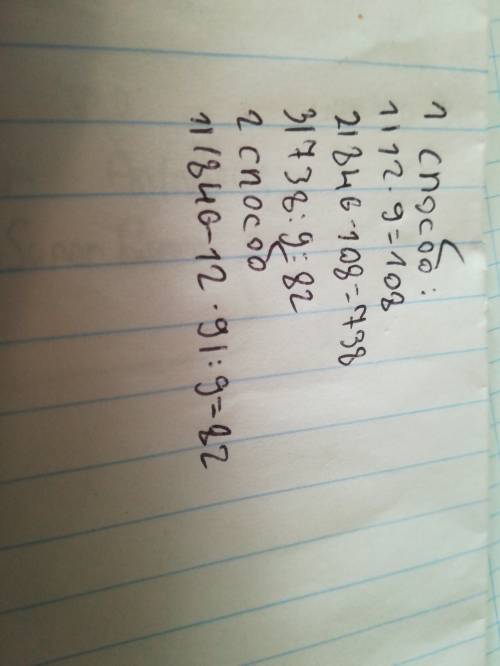 1 способ:
1) 12·9=108
2) 846-108=738
3) 738:9=82
2 способ
1) (846-12·9):9=82